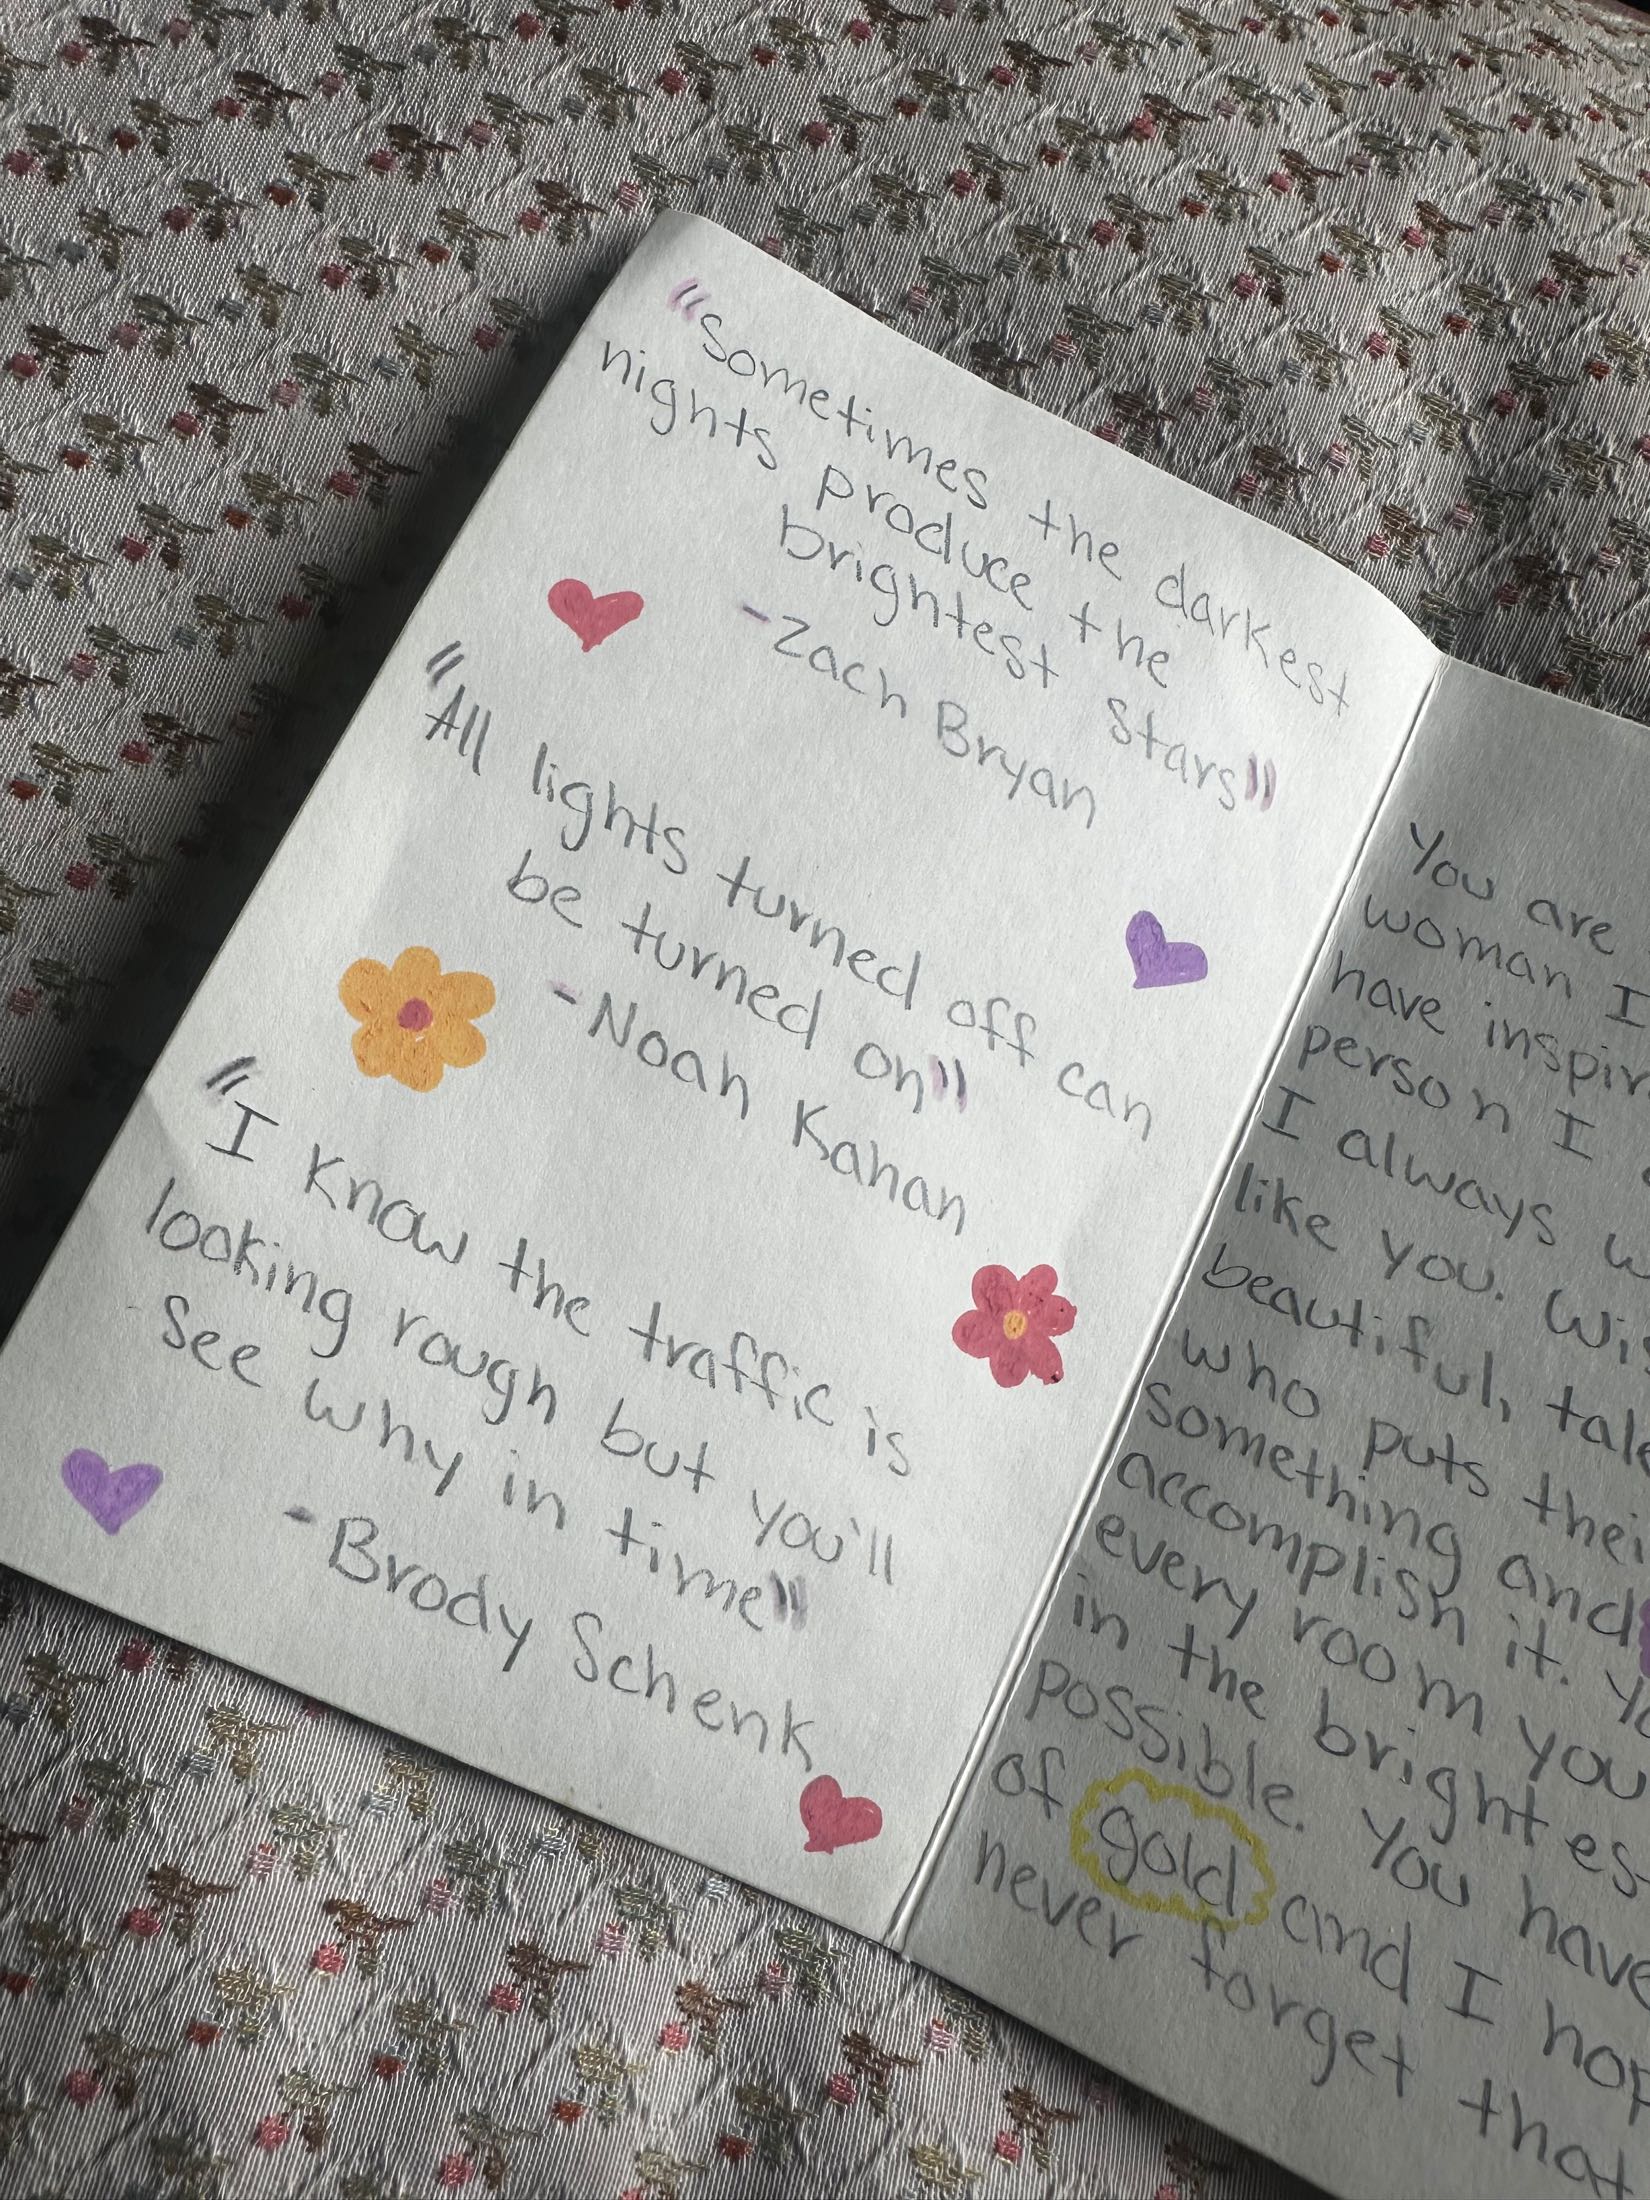 "Sometimes the darkest
nights produce the
brightest stars"
-Zach Bryan
"All lights turned off can
be turned on"
-Noah Kahan
"I know the traffic is
looking rough but you'll
see why in time"
-Brody Schenk
You are
woman I
have
person I
I always
like you.
beautiful,
who puts
something and
accomplish it.
every room you
in the
possible. You have
of gold and I
never forget that